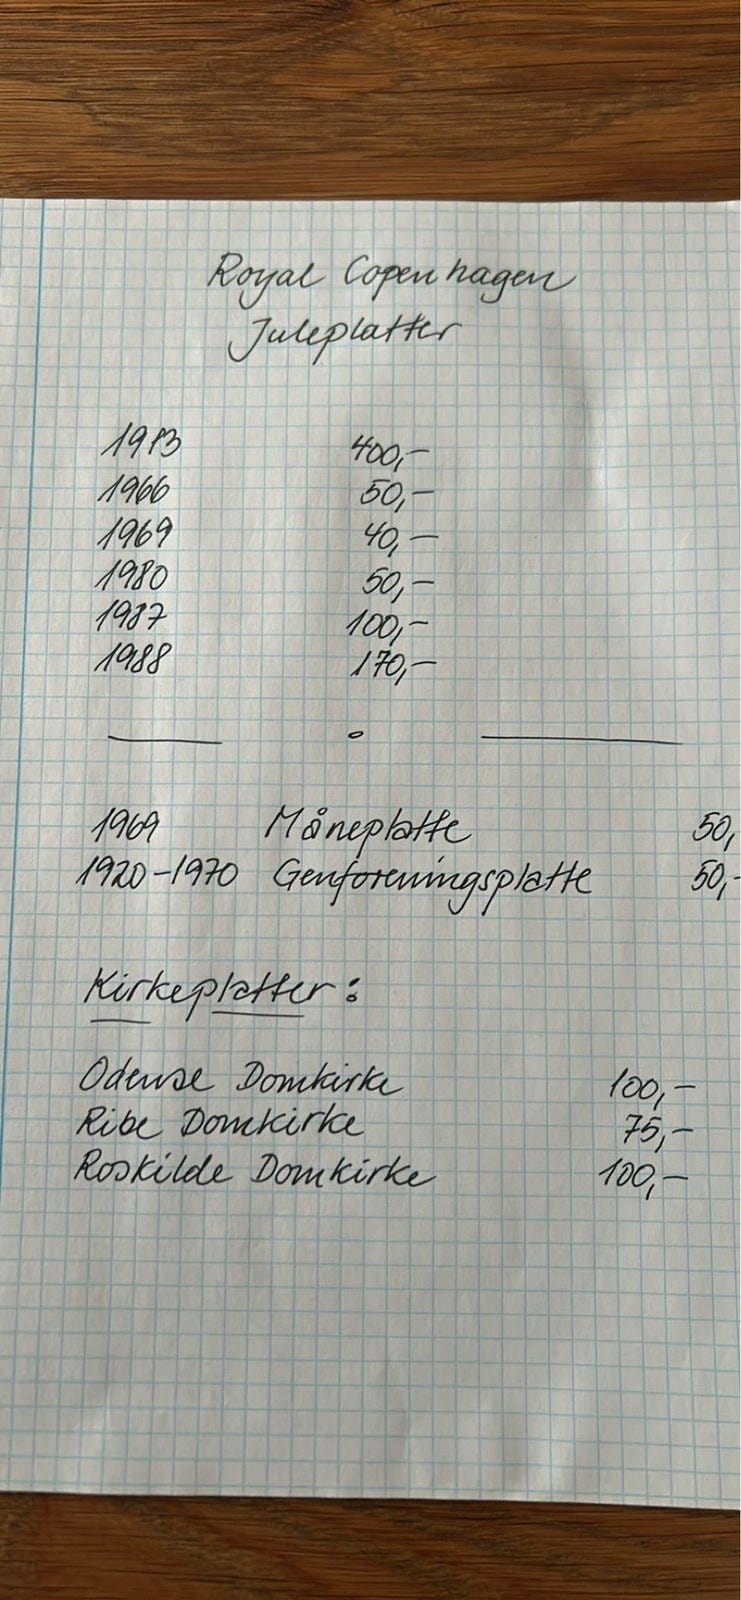 Royal Copenhagen
Juleplatter
1913 400,-
1966 50,-
1969 40,-
1980 50,-
1987 100,-
1988 170,-
1969 Måneplatte 50,
1920-1970 Genforeningsplatte 50,-
Kirkeplatter:
Odense Domkirke 100,-
Ribe Domkirke 75,-
Roskilde Domkirke 100,-